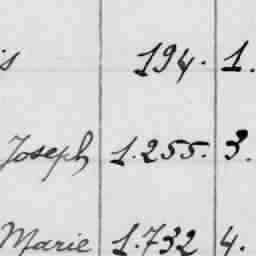 is 194. 1.
Joseph 1.255. 3.
Marie 1.732 4.